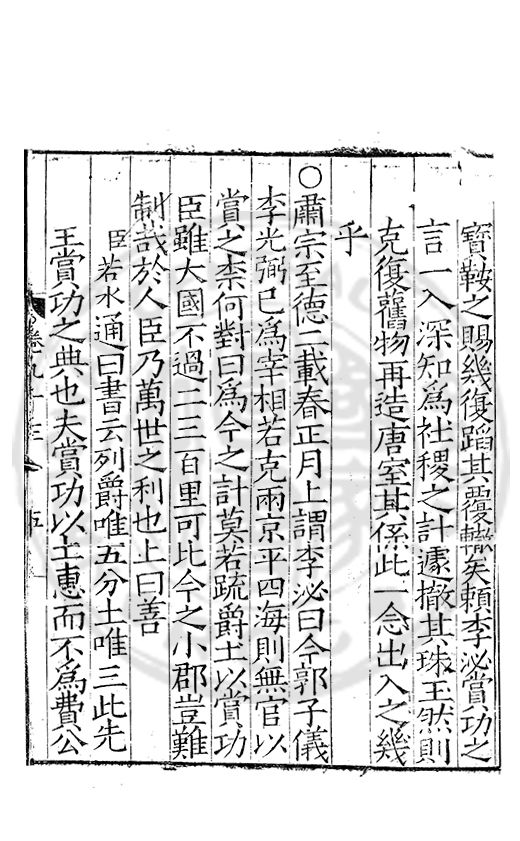 寳鞍之賜幾復蹈其覆轍矣頼李泌賞功之
言一入深知爲社稷之計遽撤其珠玉然則
克復舊物再造唐室其係此一念出入之幾
乎
○肅宗至德二載春正月上謂李泌曰今郭子儀
李光弼已爲宰相若克兩京平四海則無官以
賞之柰何對曰爲今之計莫若疏爵土以賞功
臣雖大國不過二三百里可比今之小郡豈難
制哉於人臣乃萬世之利也上曰善
臣若水通曰書云列爵唯五分土唯三此先
王賞功之典也夫賞功以土惠而不爲費公
卷九十三
五